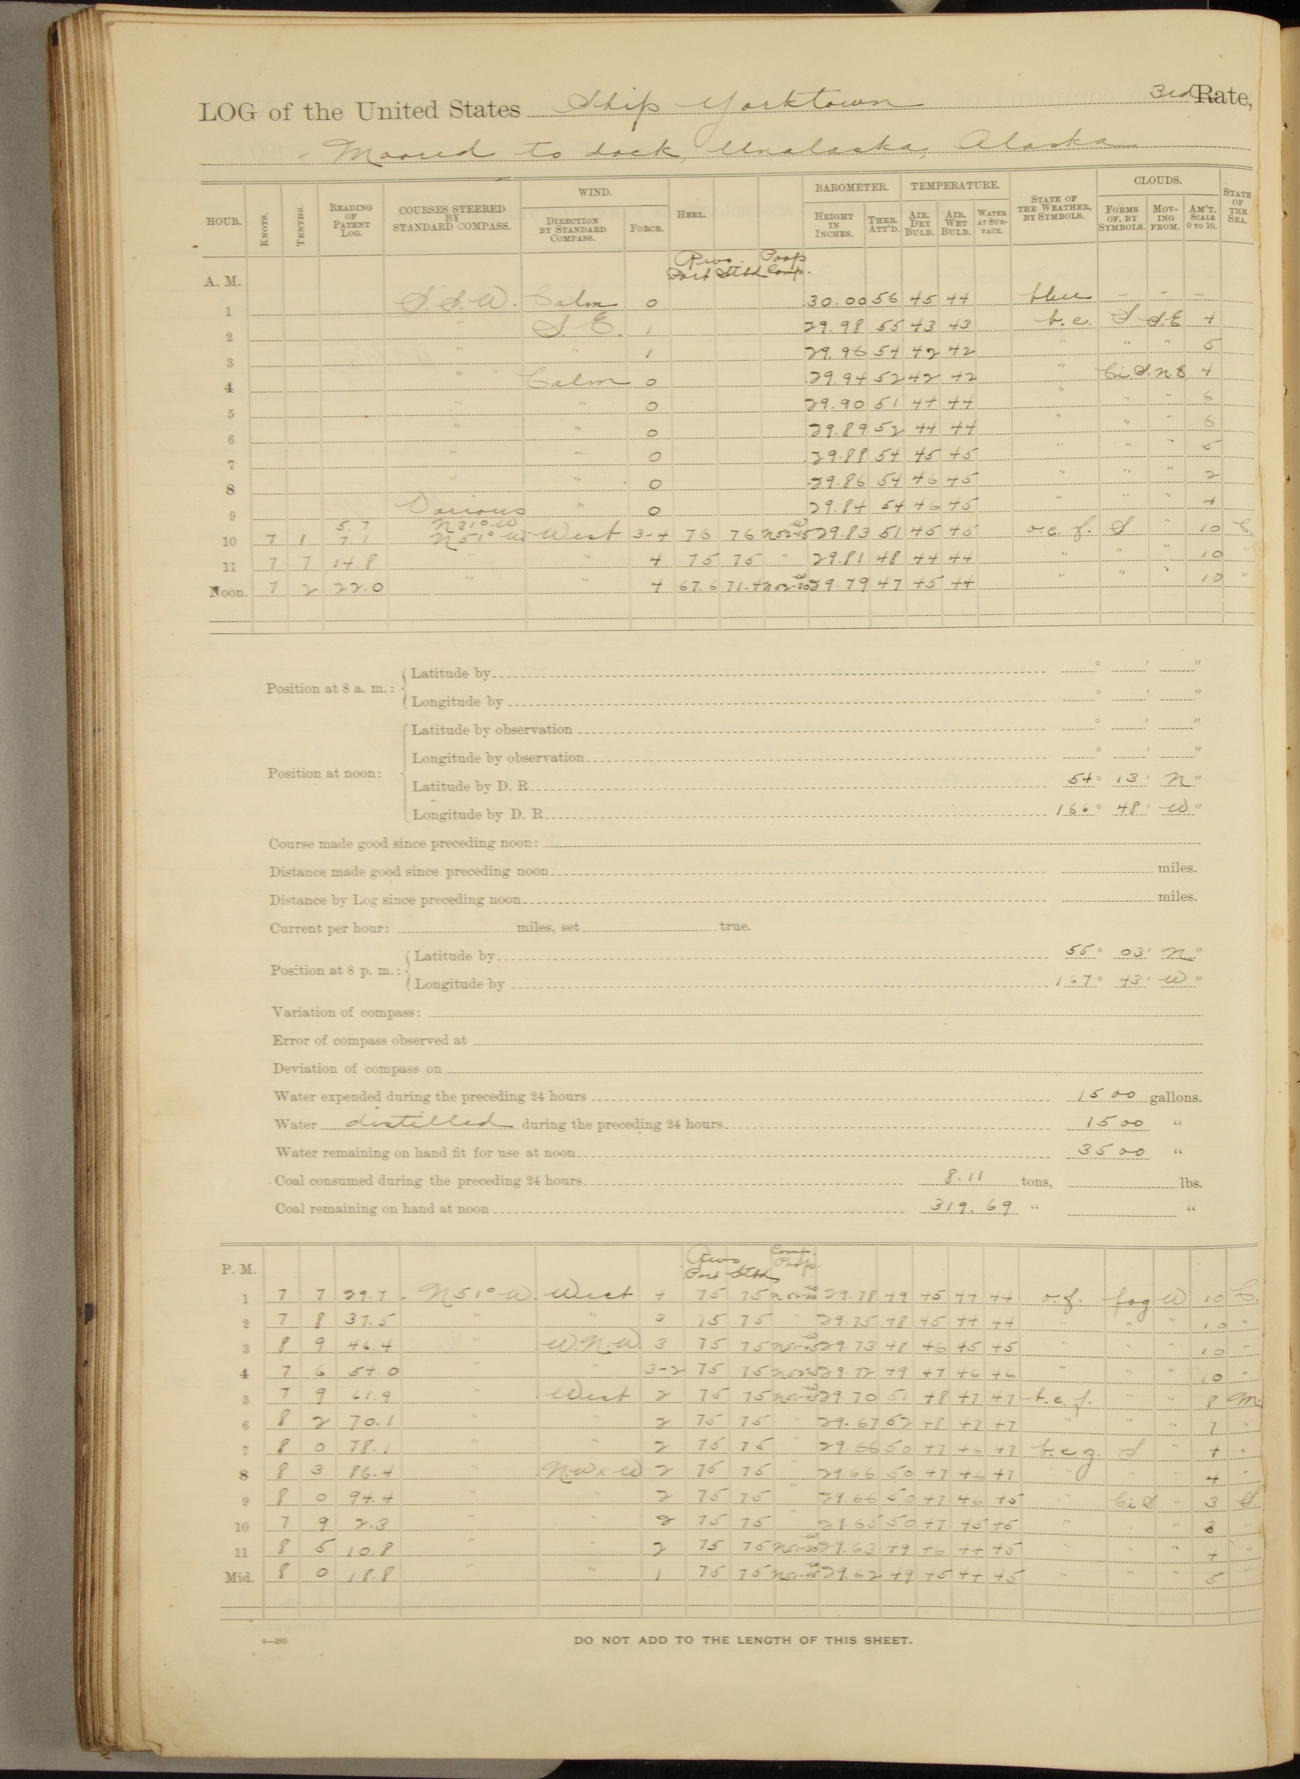 LOG of the United States Ship Yorktown 3rd Rate,
Moored to dock, Unalaska, Alaska
HOUR. KNOTS. TENTHS. READING OF PATENT LOG. COURSES STEERED BY STANDARD COMPASS. WIND. DIRECTION BY STANDARD COMPASS. FORCE. HEEL. BAROMETER. HEIGHT IN INCHES. THER. ATT'D. TEMPERATURE. AIR, DRY BULB. AIR, WET BULB. WATER AT SURFACE. STATE OF THE WEATHER, BY SYMBOLS. CLOUDS. FORMS OF, BY SYMBOLS. MOVING FROM. AM'T, SCALE 0 TO 10. STATE OF THE SEA.
A. M. Revs. Port Stbd Poop Comp.
1 S.S.W. Calm 0 30.00 56 45 44 - - -
2 " S.E. 1 29.98 55 43 43 b.c. S S.E 4
3 " " 1 29.96 54 42 42 " " " 5
4 " Calm 0 29.94 52 42 42 " Ci.S. N E 4
5 " " 0 29.90 51 44 44 " " " 6
6 " " 0 29.89 52 44 44 " " " 6
7 " " 0 29.88 54 45 45 " " " 5
8 " " 0 29.86 54 46 45 " " " 2
9 Various " 0 29.84 54 46 45 " " " 4
5.7 N31°W
10 7 1 7.1 N51°W West 3-4 76 76 29.83 51 45 45 o.c.f. S " 10
11 7 7 14.8 " " 4 75 75 " 29.81 48 44 44 " " " 10 "
Noon. 7 2 22.0 " " 4 67.6 71.4 29.79 47 45 44 " " " 10 "
Position at 8 a. m.: Latitude by ° ' "
Longitude by ° ' "
Position at noon: Latitude by observation ° ' "
Longitude by observation ° ' "
Latitude by D. R. 54° 13' N"
Longitude by D. R. 166° 48' W"
Course made good since preceding noon:
Distance made good since preceding noon miles.
Distance by Log since preceding noon miles.
Current per hour: miles, set true.
Position at 8 p. m.: Latitude by 55° 03' N"
Longitude by 167° 43' W"
Variation of compass:
Error of compass observed at
Deviation of compass on
Water expended during the preceding 24 hours 1500 gallons.
Water distilled during the preceding 24 hours 1500 "
Water remaining on hand fit for use at noon 3500 "
Coal consumed during the preceding 24 hours 8.11 tons, lbs.
Coal remaining on hand at noon 319.69 " "
P. M. Revs Port Stbd Comp. Poop
1 7 7 29.7 N51°W West 4 75 75 29.78 49 45 44 44 o.f. fog W 10
2 7 8 37.5 " " 3 75 75 " 29.75 48 45 44 44 " " " 10 "
3 8 9 46.4 " W.N.W. 3 75 75 29.73 48 46 45 45 " " " 10 "
4 7 6 54.0 " " 3-2 75 75 29.72 49 47 46 46 " " " 10 "
5 7 9 61.9 " West 2 75 75 29.70 51 48 47 47 b.c.f. " " 8 M
6 8 2 70.1 " " 2 75 75 " 29.67 52 48 47 47 " " " 7 "
7 8 0 78.1 " " 2 75 75 " 29.66 50 47 46 47 b.c.g. S " 4 "
8 8 3 86.4 " N.W x W 2 75 75 " 29.66 50 47 46 47 " " " 4 "
9 8 0 94.4 " " 2 75 75 " 29.66 50 47 46 45 " Ci S " 3 S
10 7 9 2.3 " " 2 75 75 " 29.65 50 47 45 45 " " " 3 "
11 8 5 10.8 " " 2 75 75 29.63 49 46 44 45 " " " 4 "
Mid. 8 0 18.8 " " 1 75 75 29.62 49 45 44 45 " " " 5 "
DO NOT ADD TO THE LENGTH OF THIS SHEET.